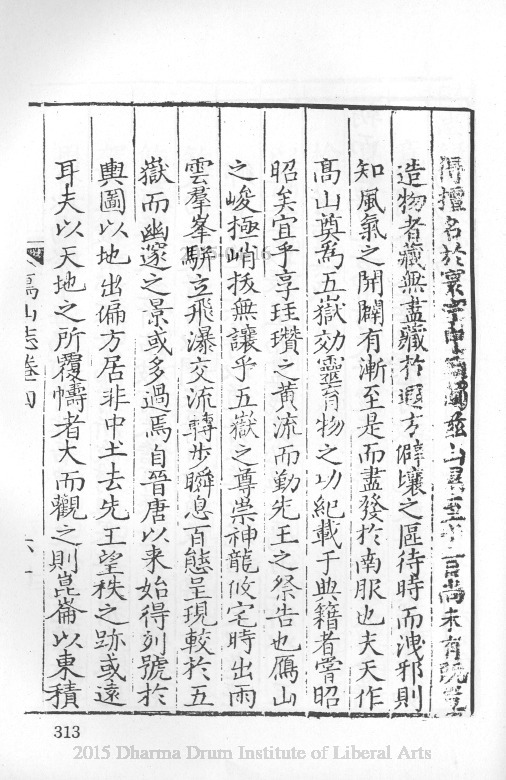 得擅名於寰宇
尚未有
造物者藏無盡藏於遐方僻壤之區待時而洩邪則
知風氣之開闢有漸至是而盡發於南服也夫天作
高山奠為五嶽効靈育物之功紀載于典籍者嘗昭
昭矣宜乎享珪瓚之黃流而勤先王之祭告也鴈山
之峻極峭拔無讓乎五嶽之尊崇神龍攸宅時出雨
雲羣峯駢立飛瀑交流轉步瞬息百態呈現較於五
嶽而幽邃之景或多過焉自晉唐以來始得列號於
輿圖以地出偏方居非中土去先王望秩之跡或遠
耳夫以天地之所覆幬者大而觀之則崑崙以東積
山志卷四
313
2015 Dharma Drum Institute of Liberal Arts